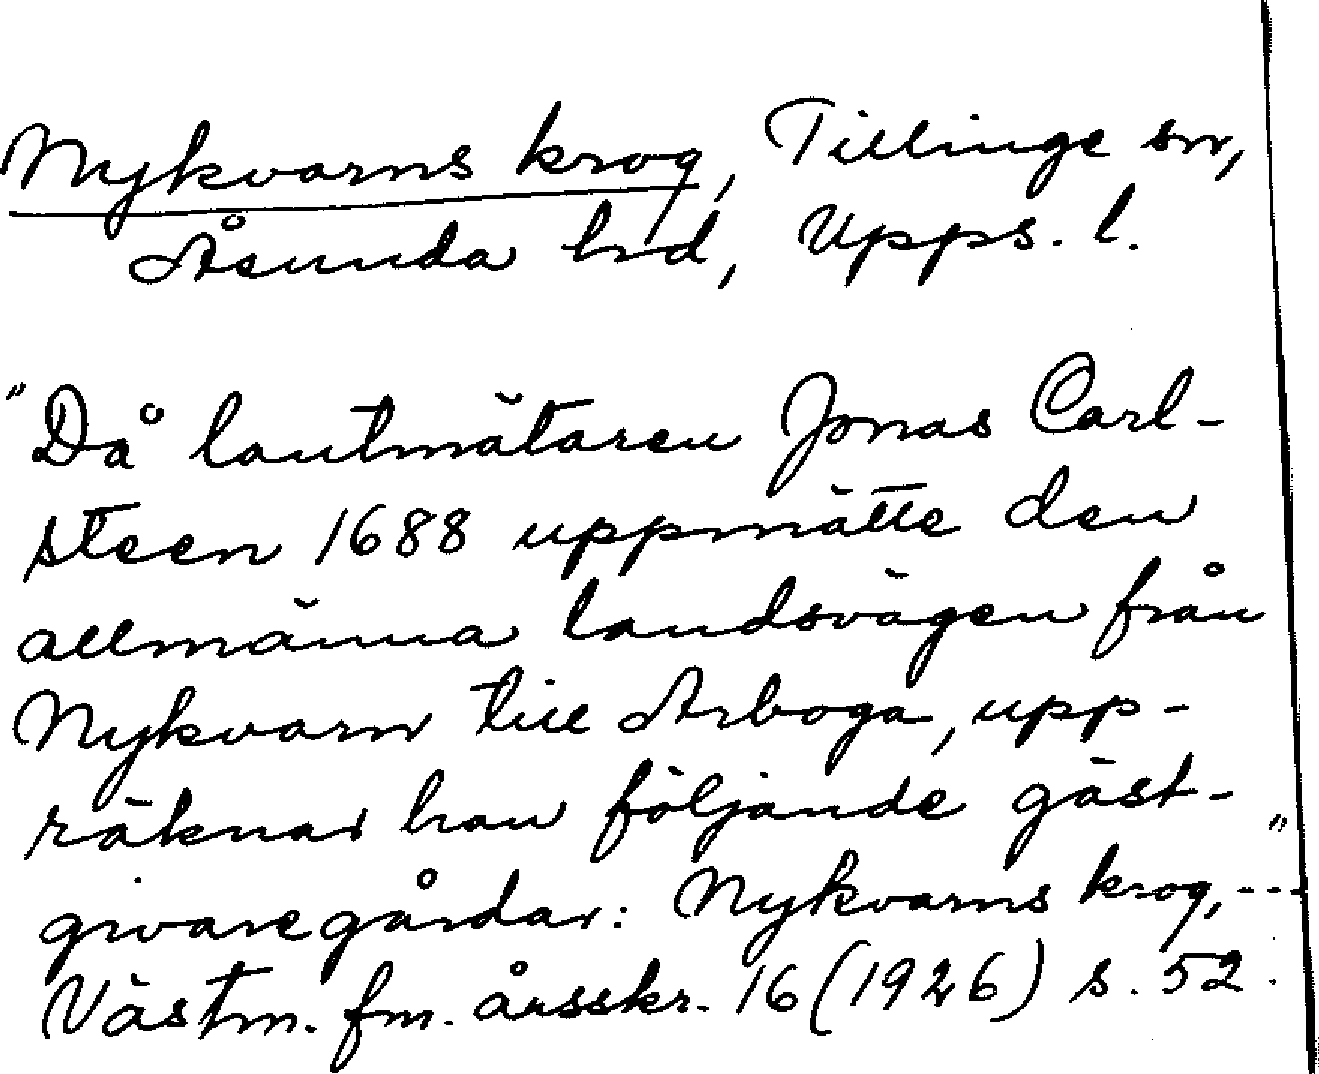 Nykvarns krog, Tillinge sn,
Åsunda hrd, Upps. l.
"Då lantmätaren Jonas Carl-
steen 1688 uppmätte den
allmänna landsvägen från
Nykvarn till Arboga, upp-
räknar han följande gäst-
givaregårdar: Nykvarns krog, ---"
Västm. fm. årsskr. 16 (1926) s. 52.